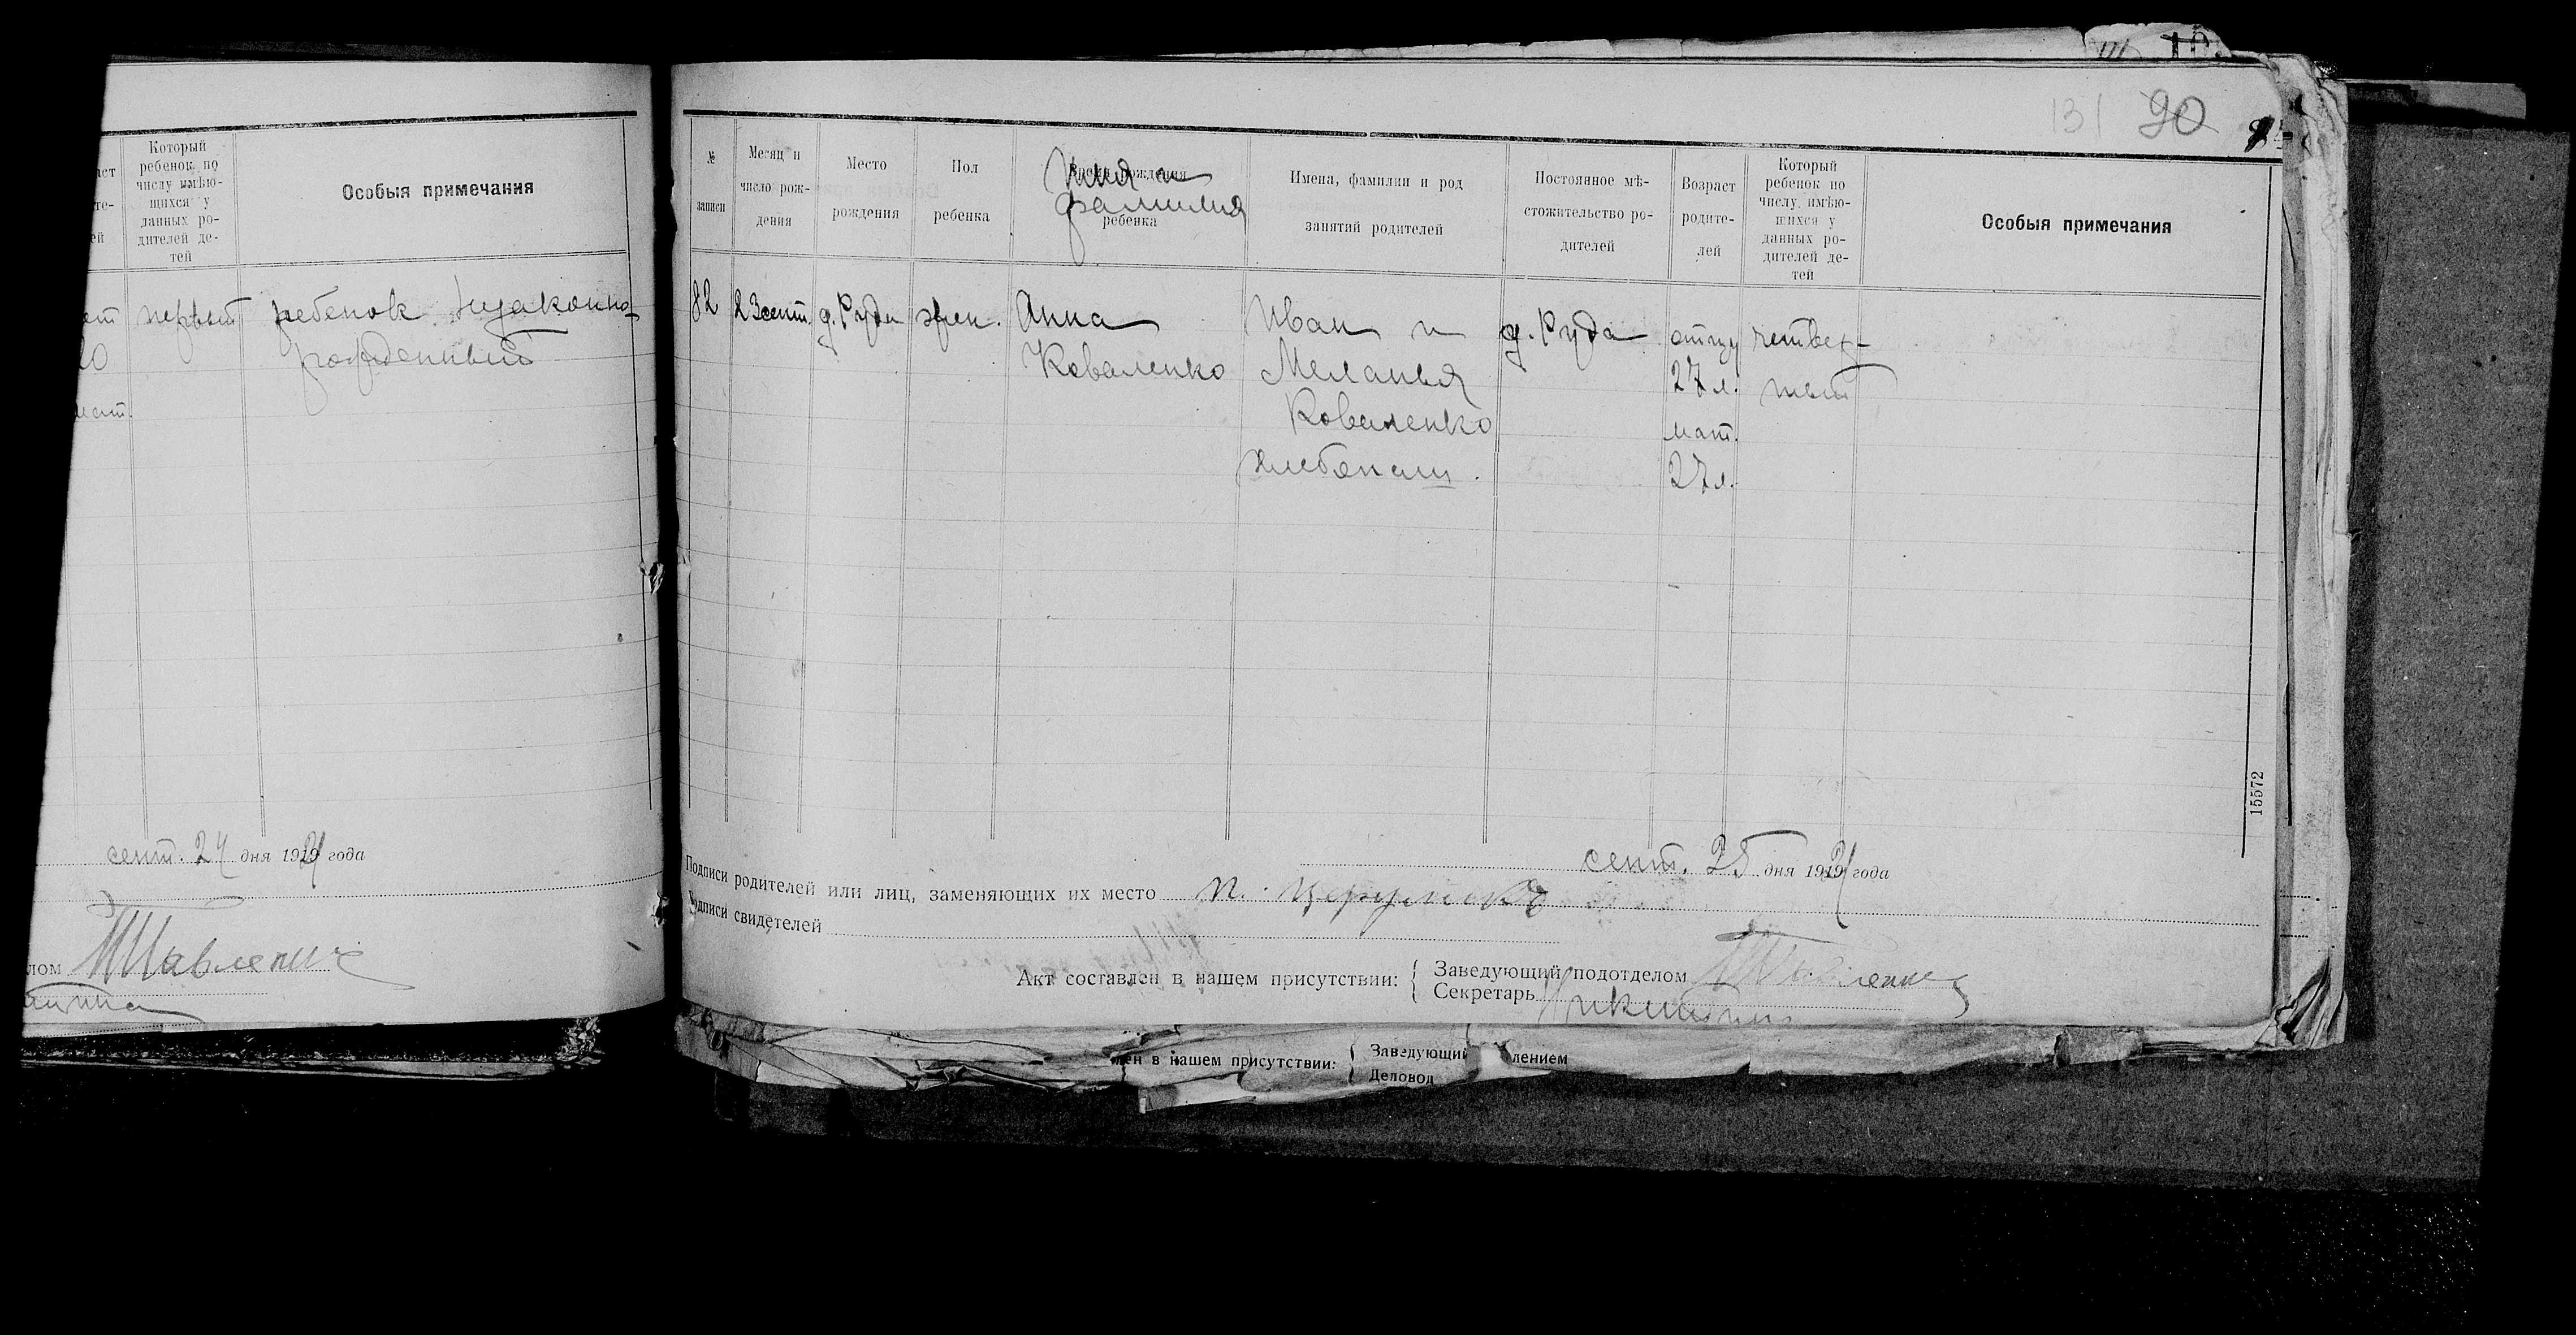 Который
ребенок по
числу имѣю-
щихся у
данных ро-
дителей де-
тей
Особыя примечания
первый
ребенок незаконно-
рожденный
20
мат.
сент. 24 дня 1921 года
Шавлепич
№
записи
Месяц и
число рож-
дения
Место
рождения
Пол
ребенка
Имя и
фамилия
ребенка
Имена, фамилии и род
занятий родителей
Постоянное мѣ-
стожительство ро-
дителей
Возраст
родите-
лей
Который
ребенок по
числу имѣю-
щихся у
данных ро-
дителей де-
тей
Особыя примечания
90
131
82
23 сент.
д. Руда
жен.
Анна
Коваленко
Иван и
Меланья
Коваленко
хлебопаш.
д. Руда
отцу
27 л.
мат.
27 л.
четвер-
тый
15572
сент. 25 дня 1921 года
Подписи родителей или лиц, заменяющих их место
Подписи свидетелей
Акт составлен в нашем присутствии:
Заведующий подотделом
Секретарь Никитина
ен в нашем присутствии:
Заведующий
лением
Деловод